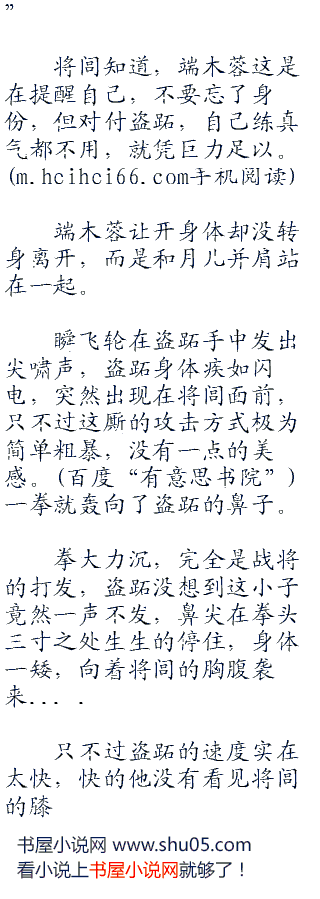 ”
将闾知道，端木蓉这是
在提醒自己，不要忘了身
份，但对付盗跖，自己练真
气都不用，就凭巨力足以。
(m.hcihci66.com手机阅读)
端木蓉让开身体却没转
身离开，而是和月儿并肩站
在一起。
瞬飞轮在盗跖手中发出
尖啸声，盗跖身体疾如闪
电，突然出现在将闾面前，
只不过这厮的攻击方式极为
简单粗暴，没有一点的美
感。(百度“有意思书院”)
一拳就轰向了盗跖的鼻子。
拳大力沉，完全是战将
的打发，盗跖没想到这小子
竟然一声不发，鼻尖在拳头
三寸之处生生的停住，身体
一矮，向着将闾的胸腹袭
来... .
只不过盗跖的速度实在
太快，快的他没有看见将闾
的膝
书屋小说网 www.shu05.com
看小说上书屋小说网就够了！